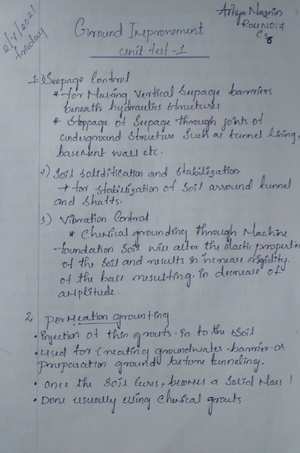 2/7/2021
Friday
Athya Nasrin
Roll NO: 7
C8
Ground Improvement
Unit test - 1
1. 1) Seepage Control
* for Making Vertical Seepage barriers
beneath hydraulics structures
* Stoppage of Seepage through joints of
underground structure such as tunnel lining,
basement wall etc.
2) Soil solidification and Stabilization
→ for stabilization of Soil arround tunnel
and Shafts.
3) Vibration Control
* Chemical groundting through Machine
foundation Soil will alter the elastic properties
of the Soil and results in increase rigidity
of the base resulting in decrease of
amplitude.
2. permeation grounting
• Injection of thin grouts in to the soil
• Used for Creating groundwater barrier or
preparation ground before tunneling.
• Once the Soil cures, becomes a Solid Mass!
• Done usually using Chemical grouts